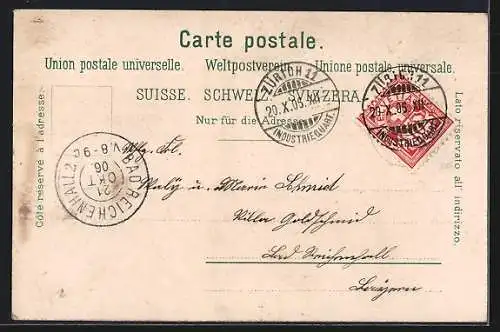 Carte postale.
Union postale universelle. Weltpostverein. Unione postale universale.
SUISSE. SCHWEIZ. SVIZZERA.
Nur für die Adresse.
Côté réservé à l'adresse.
Lato riservato all' indirizzo.
ZÜRICH 11
20.X.05.XII
INDUSTRIEQUART.
ZÜRICH 11
20.X.05.XII
INDUSTRIEQUART.
BAD REICHENHALL 2
21
OKT
06
V.8-9
Maria Schmid
Villa Goldschmid
Bad Reichenhall
Bayern